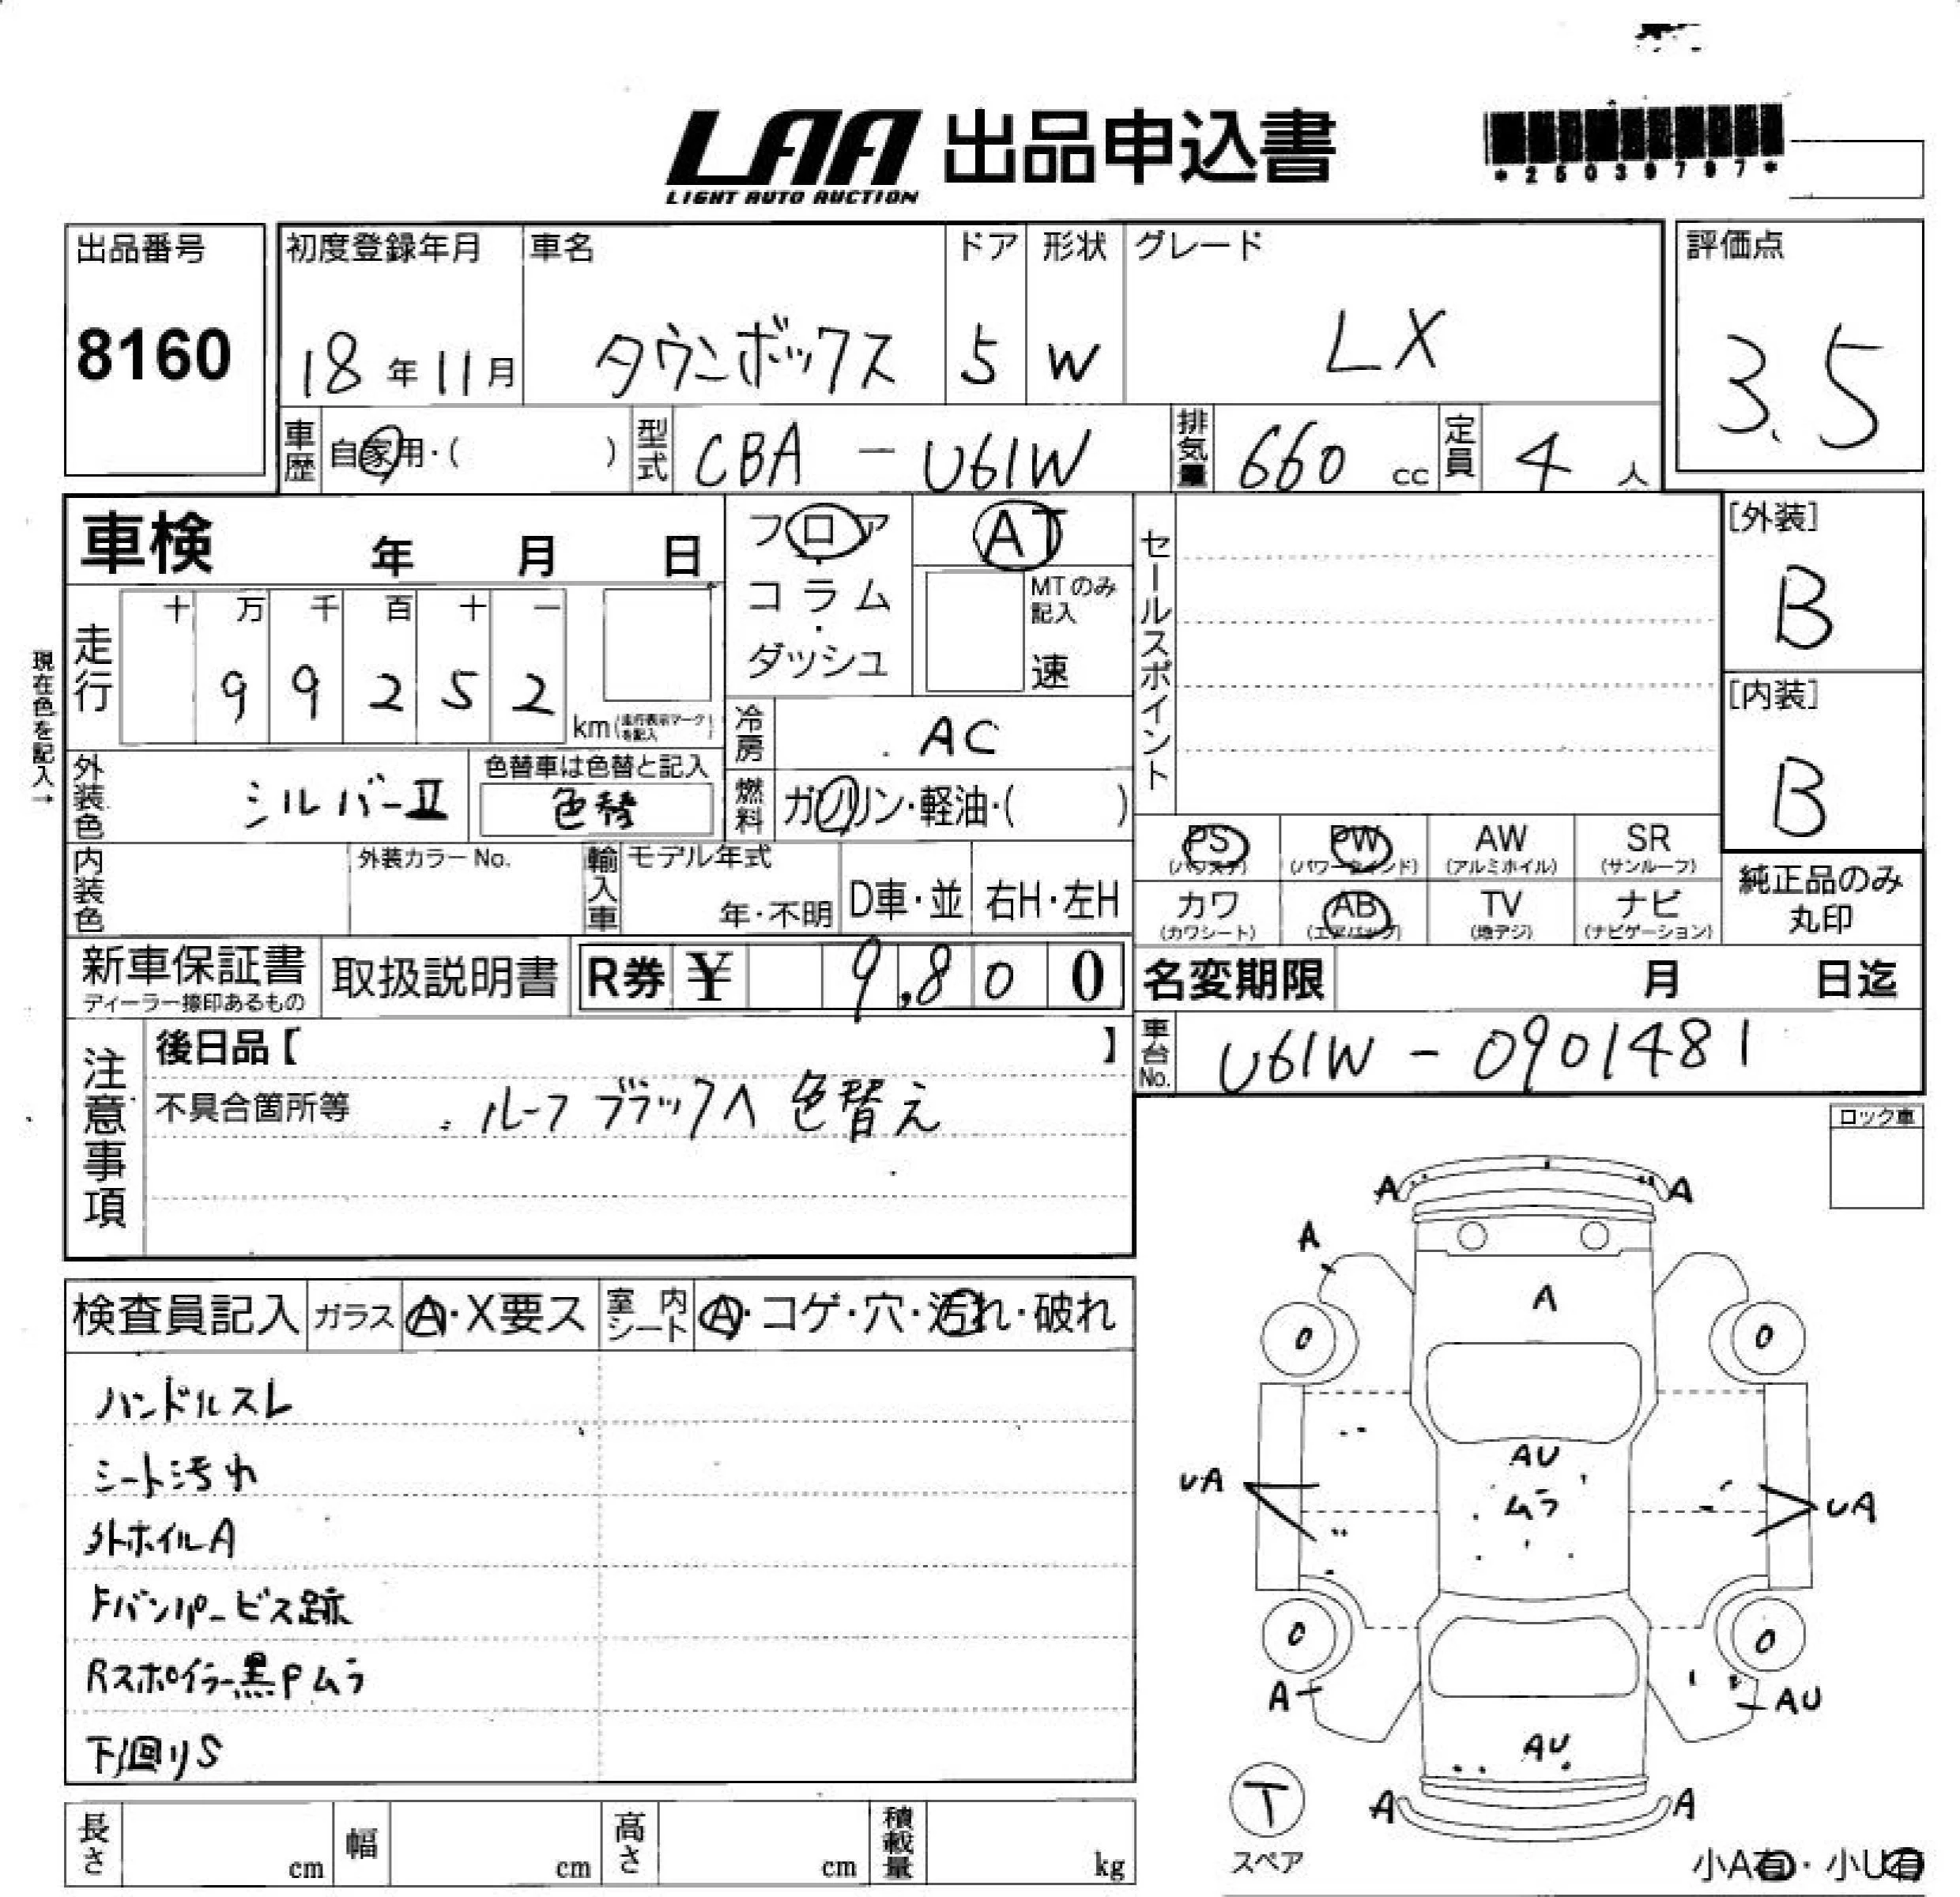 LAA 出品申込書
LIGHT AUTO AUCTION
*25039797*
出品番号
8160
初度登録年月
18年11月
車名
タウンボックス
ドア
5
形状
W
グレード
LX
評価点
3.5
車歴
自家用・( )
型式
CBA - U61W
排気量
660 cc
定員
4 人
車検 年 月 日
フロア・コラム・ダッシュ
AT
MTのみ記入
速
セールスポイント
[外装]
B
[内装]
B
現在色を記入→
走行
十 万 千 百 十 一
9 9 2 5 2
km (走行表示マークを記入)
冷房
AC
外装色
シルバーⅡ
色替車は色替と記入
色替
燃料
ガソリン・軽油・( )
PS (パワステ)
PW (パワーウインド)
AW (アルミホイル)
SR (サンルーフ)
カワ (カワシート)
AB (エアバッグ)
TV (地デジ)
ナビ (ナビゲーション)
純正品のみ丸印
内装色
外装カラーNo.
輸入車
モデル年式
年・不明
D車・並
右H・左H
新車保証書
ディーラー捺印あるもの
取扱説明書
R券 ¥ 9,800
名変期限 月 日迄
車台No.
U61W - 0901481
注意事項
後日品【 】
不具合箇所等
ルーフ ブラックへ 色替え
ロック車
検査員記入
ガラス
A・X要ス
室内シート
A・コゲ・穴・汚れ・破れ
ハンドルスレ
シート汚れ
外ホイルA
Fバンパービス跡
Rスポイラー黒Pムラ
下回りS
A A
A
A
0 0
AU
ムラ
UA UA
0 0
A AU
AU
A A
T
スペア
小A有・小U有
長さ cm
幅 cm
高さ cm
積載量 kg